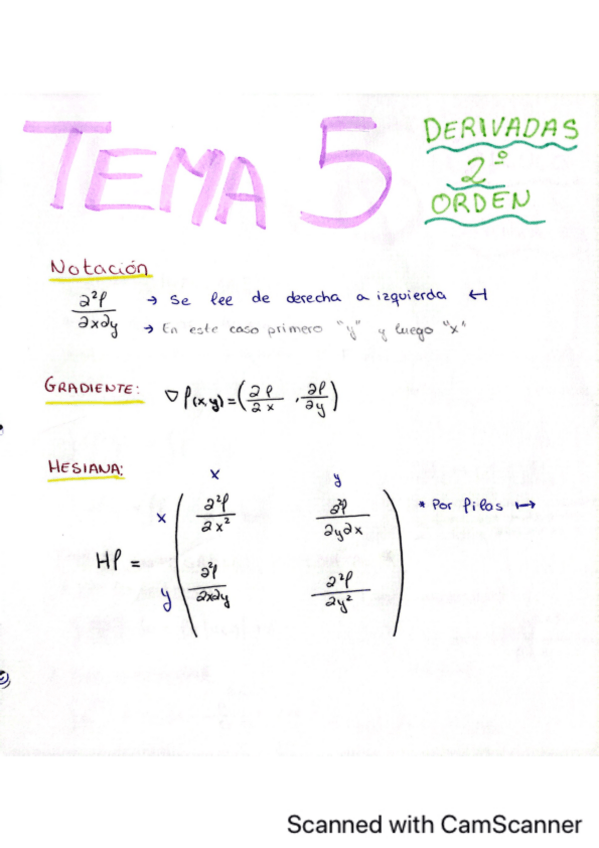 TEMA 5
DERIVADAS
2º
ORDEN
Notación
∂²f/∂x∂y → Se lee de derecha a izquierda ↤
→ En este caso primero "y" y luego "x"
GRADIENTE: ∇f(x,y)=(∂f/∂x , ∂f/∂y)
HESIANA:
x y
x ∂²f/∂x² ∂²f/∂y∂x * Por filas ↦
Hf =
y ∂²f/∂x∂y ∂²f/∂y²
Scanned with CamScanner